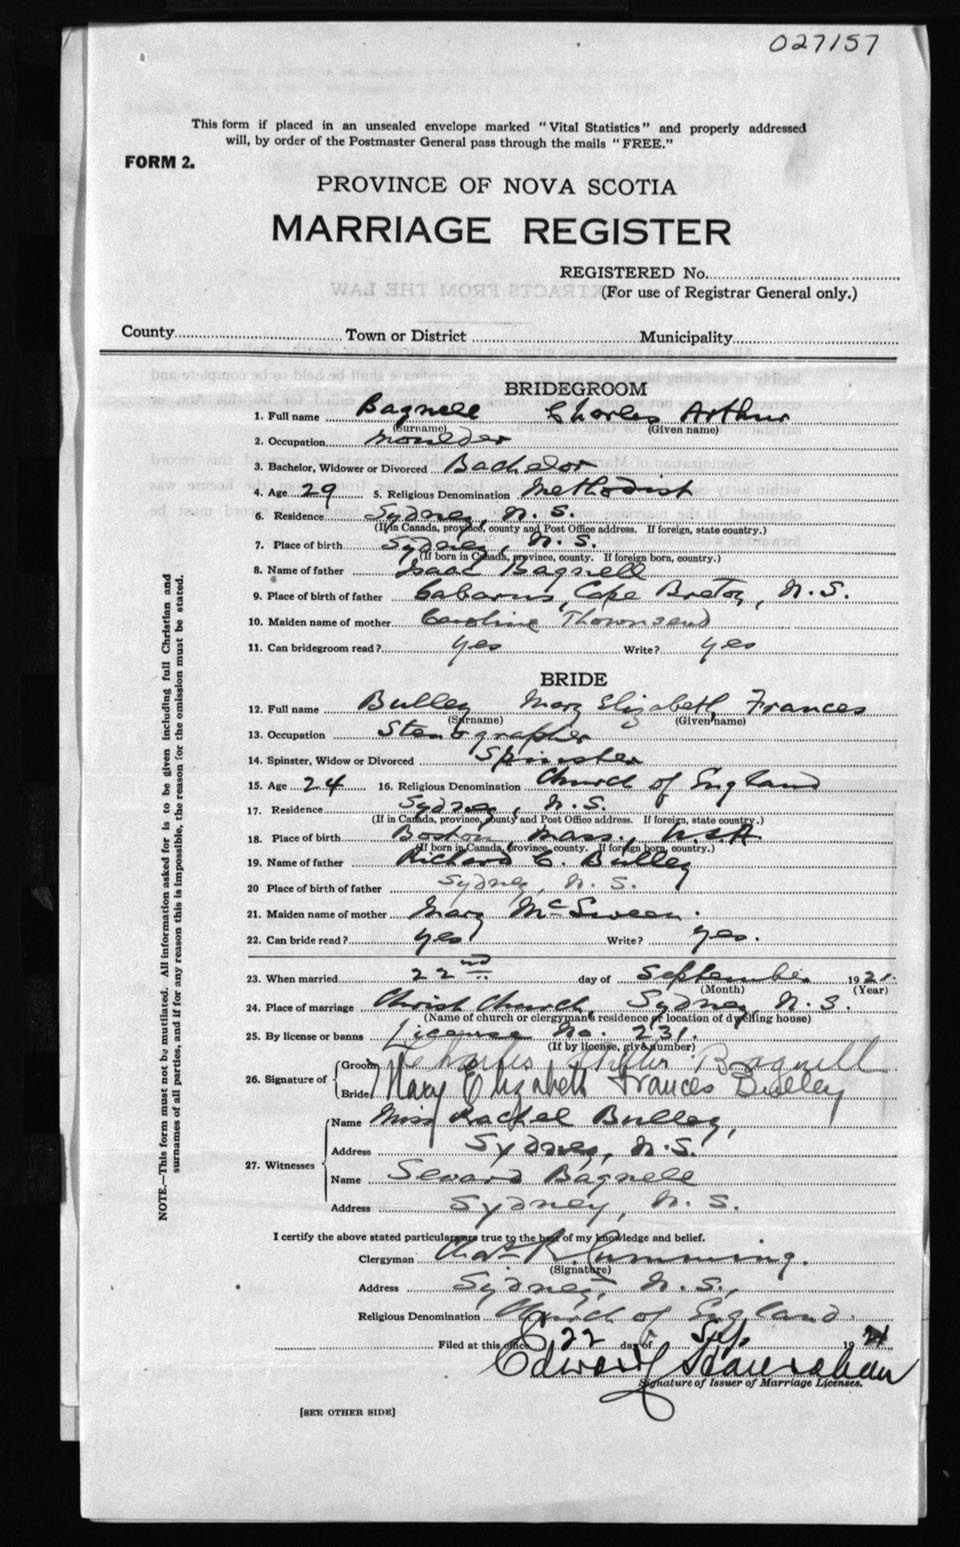 027157
This form if placed in an unsealed envelope marked "Vital Statistics" and properly addressed
will, by order of the Postmaster General pass through the mails "FREE."
FORM 2.
PROVINCE OF NOVA SCOTIA
MARRIAGE REGISTER
REGISTERED No.
(For use of Registrar General only.)
County Town or District Municipality
BRIDEGROOM
1. Full name Bagnell Charles Arthur
(Surname) (Given name)
2. Occupation moulder
3. Bachelor, Widower or Divorced Bachelor
4. Age 29 5. Religious Denomination Methodist
6. Residence Sydney, N.S.
(If in Canada, province, county and Post Office address. If foreign, state country.)
7. Place of birth Sydney, N.S.
(If born in Canada, province, county. If foreign born, country.)
8. Name of father Isaac Bagnell
9. Place of birth of father Gabarus, Cape Breton, N.S.
10. Maiden name of mother Caroline Thownsend
11. Can bridegroom read? yes Write? yes
BRIDE
12. Full name Bulley Mary Elizabeth Frances
(Surname) (Given name)
13. Occupation Stenographer
14. Spinster, Widow or Divorced Spinster
15. Age 24 16. Religious Denomination Church of England
17. Residence Sydney, N.S.
(If in Canada, province, county and Post Office address. If foreign, state country.)
18. Place of birth Boston Mass., U.S.A
(If born in Canada, province, county. If foreign born, country.)
19. Name of father Richard C. Bulley
20 Place of birth of father Sydney, N.S.
21. Maiden name of mother Mary McSween.
22. Can bride read? yes Write? yes.
23. When married 22nd day of September 1921.
(Month) (Year)
24. Place of marriage Christ Church, Sydney, N.S.
(Name of church or clergyman's residence or location of dwelling house)
25. By license or banns License No. 231.
(If by license, give number)
26. Signature of Groom Charles Arthur Bagnell
Bride Mary Elizabeth Frances Bulley
27. Witnesses Name Miss Rachel Bulley,
Address Sydney, N.S.
Name Seward Bagnell
Address Sydney, N.S.
I certify the above stated particulars are true to the best of my knowledge and belief.
Clergyman Chas R. Cumming.
(Signature)
Address Sydney, N.S.,
Religious Denomination Church of England.
Filed at this office 22 day of Sep 1921
Edward
Signature of Issuer of Marriage Licenses.
[SEE OTHER SIDE]
NOTE.—This form must not be mutilated. All information asked for is to be given including full Christian and
surnames of all parties, and if for any reason this is impossible, the reason for the omission must be stated.